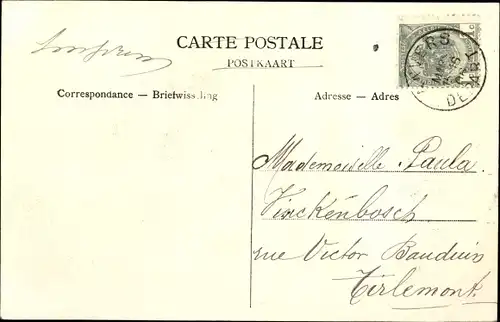 CARTE POSTALE
POSTKAART
Correspondance — Briefwisseling
Adresse — Adres
Mademoiselle Paula
Vinckenbosch
rue Victor Bauduin
Tirlemont.